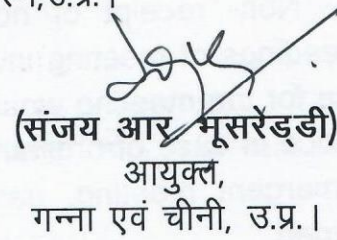 (संजय आर मूसरेड्डी)
आयुक्त,
गन्ना एवं चीनी, उ.प्र.।